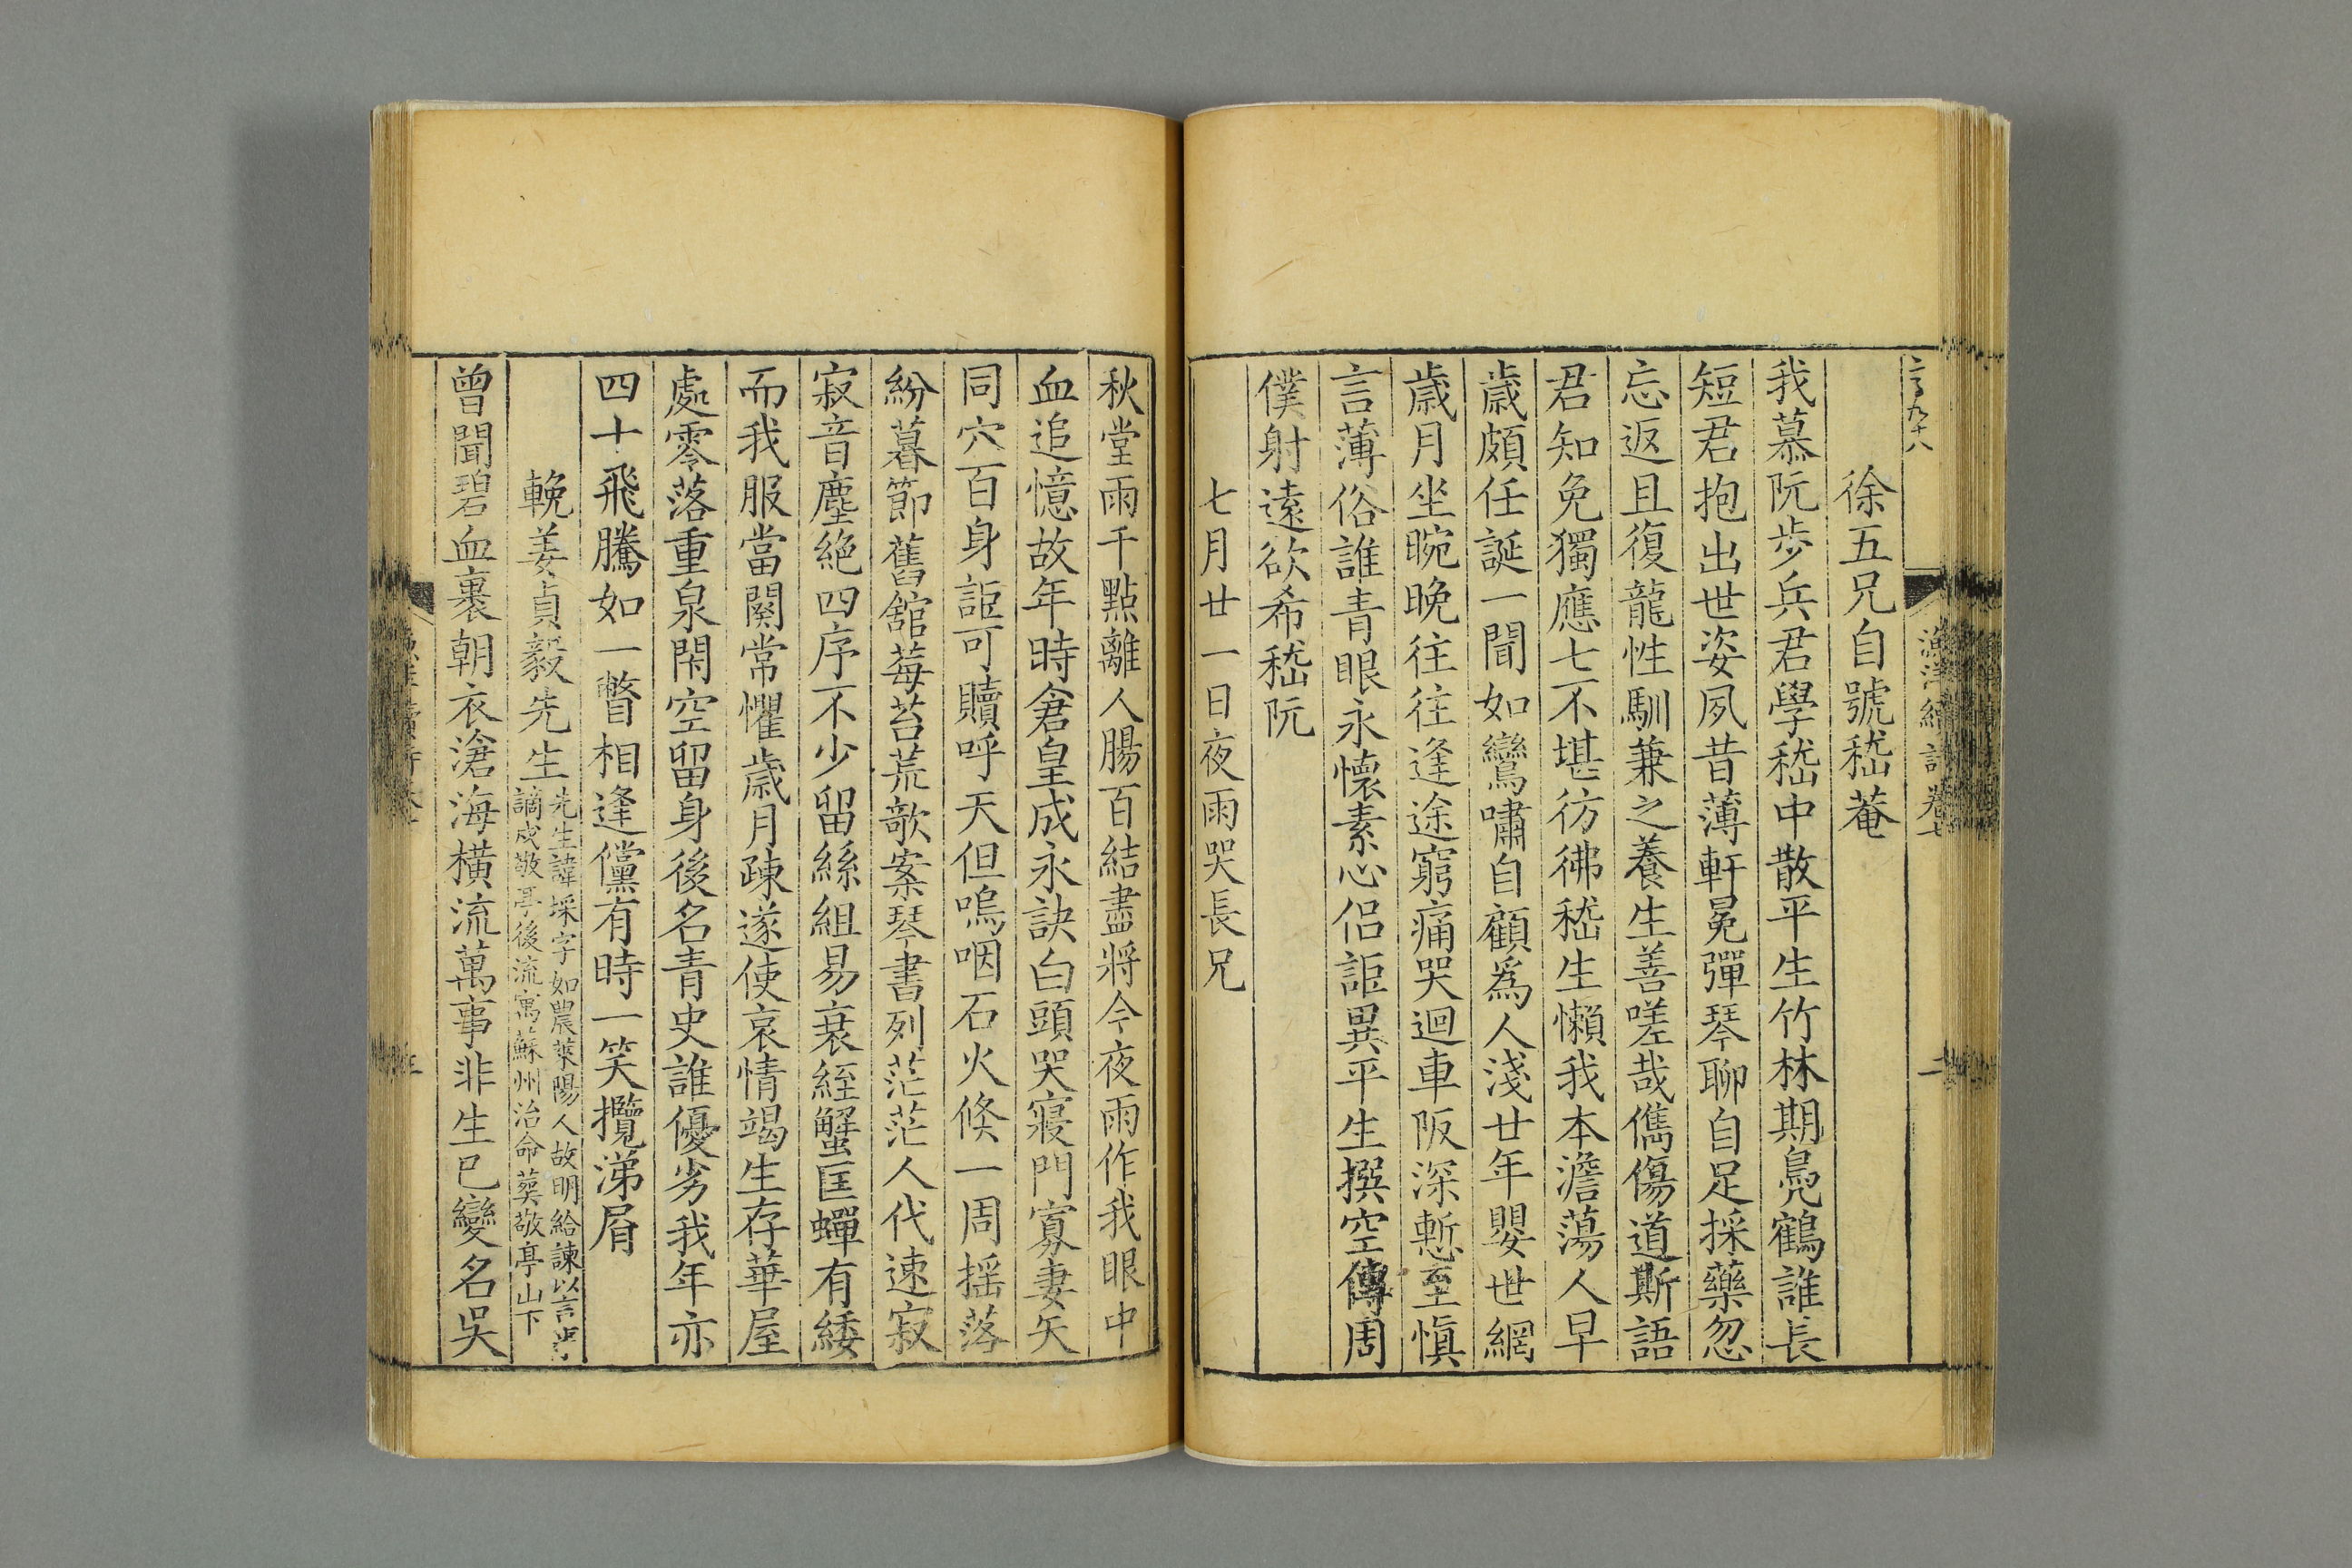 二百九十八
漁洋續詩卷七
徐五兄自號嵇菴
我慕阮步兵君學嵇中散平生竹林期鳧鶴誰長
短君抱出世姿夙昔薄軒冕彈琴聊自足採藥忽
忘返且復龍性馴兼之養生善嗟哉儁傷道斯語
君知免獨應七不堪彷彿嵇生懶我本澹蕩人早
歲頗任誕一聞如鸞嘯自顧爲人淺廿年嬰世網
歲月坐晼晚往往逢途窮痛哭迴車阪深慙至愼
言薄俗誰青眼永懷素心侣詎異平生撰空傳周
僕射遠欲希嵇阮
七月廿一日夜雨哭長兄
秋堂雨千點離人腸百結盡將今夜雨作我眼中
血追憶故年時倉皇成永訣白頭哭寢門寡妻矢
同穴百身詎可贖呼天但嗚咽石火倐一周摇落
紛暮節舊舘莓苔荒歌案琴書列茫茫人代速寂
寂音塵絶四序不少留絲組易衰絰蟹匡蟬有緌
而我服當闋常懼歲月疎遂使哀情竭生存華屋
處零落重泉閉空留身後名青史誰優劣我年亦
四十飛騰如一瞥相逢儻有時一笑攬涕屑
輓姜貞毅先生
先生諱埰字如農萊陽人故明給諫以言事
謫戍敬亭後流寓蘇州治命葬敬亭山下
曾聞碧血裹朝衣滄海橫流萬事非生已變名吳